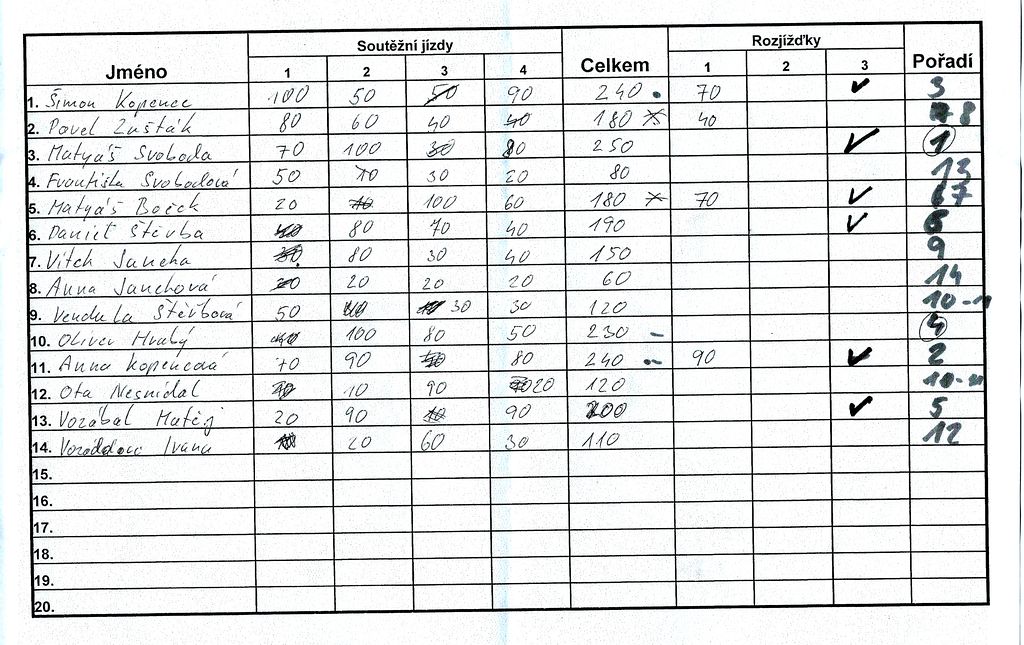 Jméno Soutěžní jízdy Celkem Rozjížďky Pořadí
1 2 3 4 1 2 3
1. Šimon Kopenec 100 50 50 90 240 • 70 ✓ 3
2. Pavel Zušták 80 60 40 40 180 × 40 8
3. Matyáš Svoboda 70 100 30 80 250 ✓ 1
4. Františka Svobodová 50 10 30 20 80 13
5. Matyáš Boček 20 100 60 180 × 70 ✓ 7
6. Daniel Štěrba 80 70 40 190 ✓ 6
7. Vítek Jancha 80 30 40 150 9
8. Anna Janchová 20 20 20 20 60 14
9. Vendula Štěrbová 50 30 30 120 10-11
10. Oliver Hrubý 100 80 50 230 - 4
11. Anna Kopencová 70 90 80 240 90 ✓ 2
12. Ota Nesnídal 10 90 20 120 10-11
13. Vozábal Matěj 20 90 90 200 ✓ 5
14. Ivana 20 60 30 110 12
15.
16.
17.
18.
19.
20.